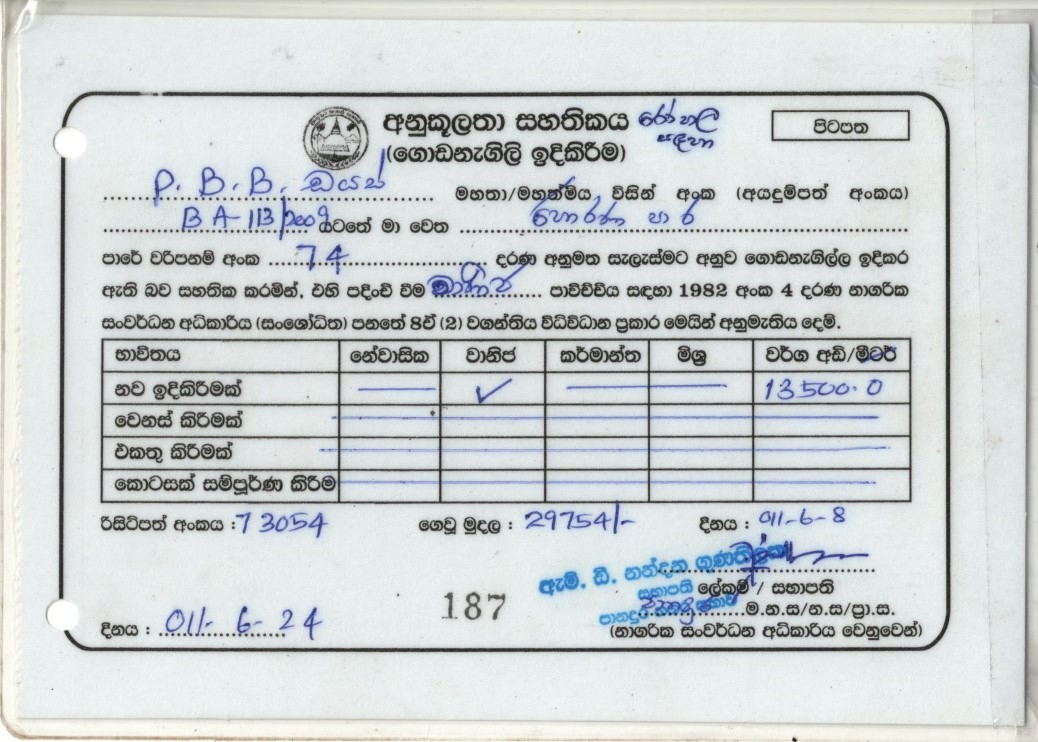 අනුකූලතා සහතිකය රෝහල සඳහා
පිටපත
(ගොඩනැගිලි ඉදිකිරීම)
P. B. B. ඩයස් මහතා/මහත්මිය විසින් අංක (අයදුම්පත් අංකය)
BA-113/2009 යටතේ මා වෙත හොරණ පාර
පාරේ වරිපනම් අංක 74 දරණ අනුමත සැලැස්මට අනුව ගොඩනැගිල්ල ඉදිකර
ඇති බව සහතික කරමින්, එහි පදිංචි වීම වාණිජ පාවිච්චිය සඳහා 1982 අංක 4 දරණ නාගරික
සංවර්ධන අධිකාරිය (සංශෝධිත) පනතේ 8ඒ (2) වගන්තිය විධිවිධාන ප්‍රකාර මෙයින් අනුමැතිය දෙමි.
භාවිතය නේවාසික වානිජ කර්මාන්ත මිශ්‍ර වර්ග අඩි/මීටර්
නව ඉදිකිරීමක් ✓ 13500.0
වෙනස් කිරීමක්
එකතු කිරීමක්
කොටසක් සම්පූර්ණ කිරීම
රිසිට්පත් අංකය : 73054 ගෙවූ මුදල : 29754/- දිනය : 011-6-8
ඇම්. ඩී. නන්දන ගුණතිලක
සභාපති ලේකම් / සභාපති
ම.න.ස/න.ස/ප්‍රා.ස.
187
දිනය : 011-6-24 (නාගරික සංවර්ධන අධිකාරිය වෙනුවෙන්)